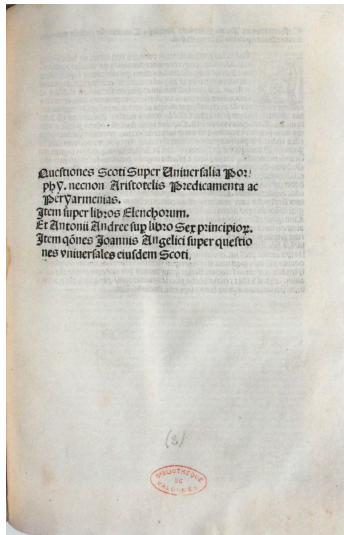 Questiones Scoti Super Uniuersalia Por⸗
phy. necnon Aristotelis Predicamenta ac
Peryarmenias.
Item super libros Elenchorum.
Et Antonii Andree sup libro Sex principioꝝ.
Item qōnes Joannis Angelici super questio
nes vniuersales eiusdem Scoti.
(8)
BIBLIOTHEQUE
DE
VALOGNES